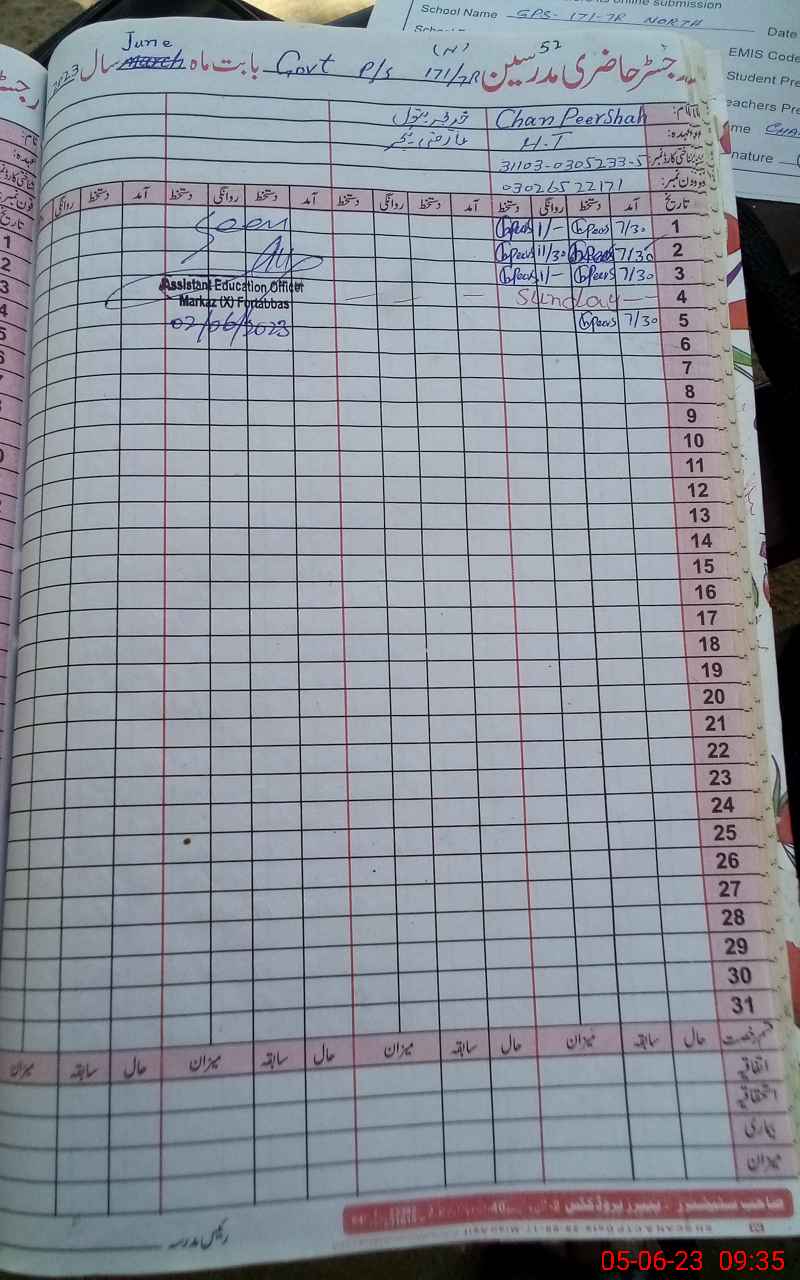 online submission
School Name GPS- 171-7R NORTH
Date
EMIS Code
Student Pre
eachers Pre
me
nature
52
رجسٹر حاضری مدرسین Govt P/S 171/7R (N) بابت ماہ March June سال 2023
نام: Chan Peer Shah خدیجہ بتول
عہدہ: H.T عارضی ٹیچر
شناختی کارڈ نمبر: 31103-0305233-5
فون نمبر: 03026522171
تاریخ آمد دستخط روانگی دستخط آمد دستخط روانگی دستخط آمد دستخط روانگی دستخط آمد دستخط روانگی
1 7/30 1/-
2 7/30 11/30
3 7/30 1/-
4 Sunday
5 7/30
Seen
Assistant Education Officer
Markaz (X) Fortabbas
02/06/2023
6
7
8
9
10
11
12
13
14
15
16
17
18
19
20
21
22
23
24
25
26
27
28
29
30
31
قسم رخصت حال سابقہ میزان حال سابقہ میزان حال سابقہ میزان حال سابقہ میزان
اتفاقیہ
استحقاقیہ
بیماری
میزان
صاحب سٹیشنرز - پیپر پروڈکٹس
رئیس مدرسہ
05-06-23 09:35